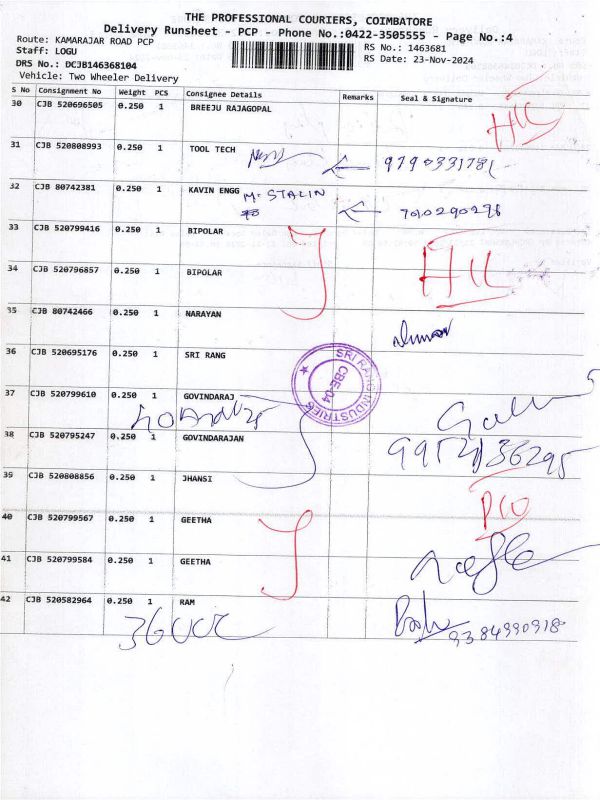 THE PROFESSIONAL COURIERS, COIMBATORE
Delivery Runsheet - PCP - Phone No.:0422-3505555 - Page No.:4
Route: KAMARAJAR ROAD PCP
Staff: LOGU
RS No.: 1463681
RS Date: 23-Nov-2024
DRS No.: DCJB146368104
Vehicle: Two Wheeler Delivery
S No Consignment No Weight PCS Consignee Details Remarks Seal & Signature
30 CJB 520696505 0.250 1 BREEJU RAJAGOPAL
31 CJB 520808993 0.250 1 TOOL TECH 9790331781
32 CJB 80742381 0.250 1 KAVIN ENGG
M. STALIN
33 CJB 520799416 0.250 1 BIPOLAR
34 CJB 520796857 0.250 1 BIPOLAR
35 CJB 80742466 0.250 1 NARAYAN
36 CJB 520695176 0.250 1 SRI RANG
SRI RANG INDUSTRIES
CBE-04
37 CJB 520799610 0.250 1 GOVINDARAJ
38 CJB 520795247 0.250 1 GOVINDARAJAN
39 CJB 520808856 0.250 1 JHANSI
40 CJB 520799567 0.250 1 GEETHA
41 CJB 520799584 0.250 1 GEETHA
42 CJB 520582964 0.250 1 RAM
9384990918